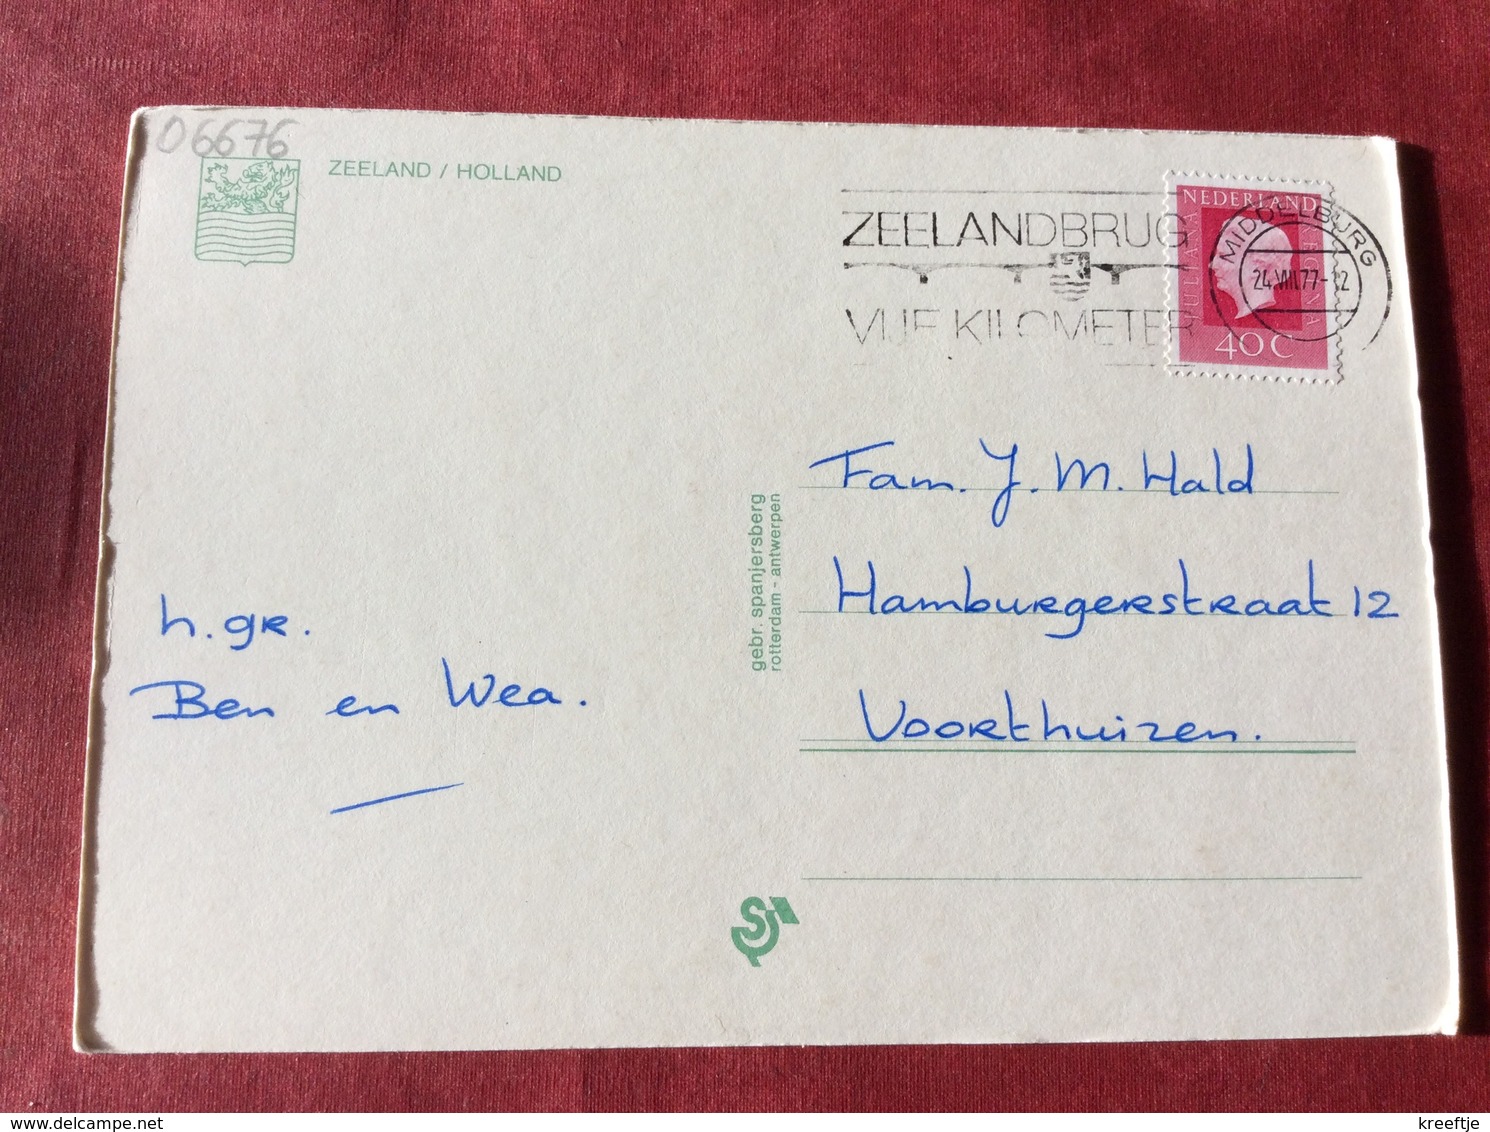 06676
ZEELAND / HOLLAND
ZEELANDBRUG
VIJF KILOMETER
NEDERLAND
JULIANA
REGINA
40C
MIDDELBURG
24.VIII.77-12
Fam. J. M. Hald
Hamburgerstraat 12
Voorthuizen.
h.gr.
Ben en Wea.
gebr. spanjersberg
rotterdam - antwerpen
delcampe.net
kreeftje